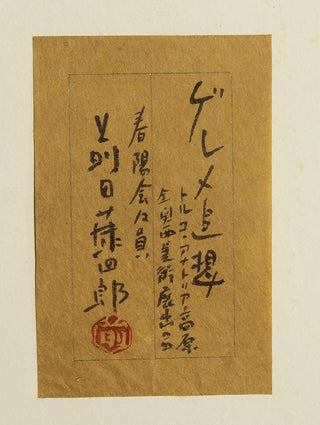 ゲレメ追想
トルコ・アナトリア高原
全関西美術展出品
春陽会々員
前田藤四郎
前